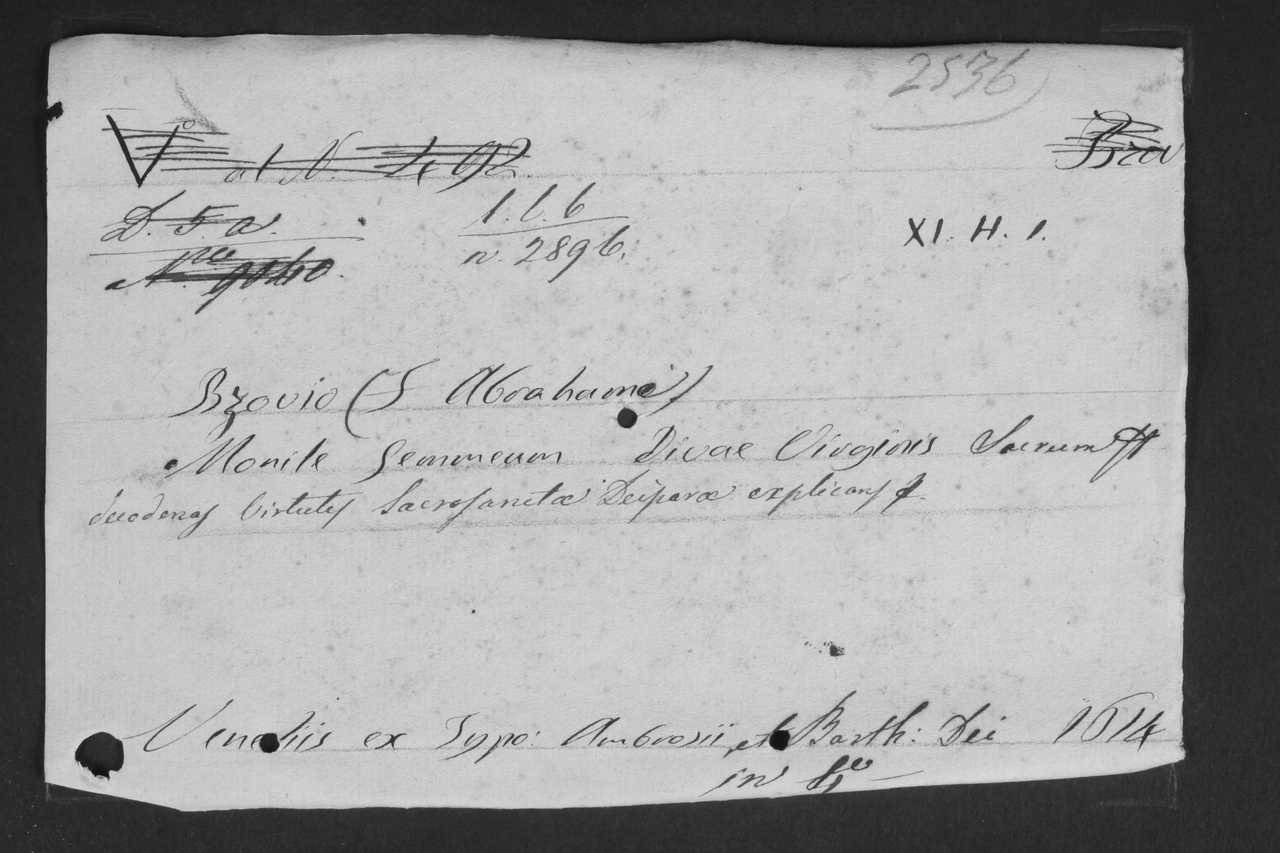 2536
V° al N. 492
Bzov
D. 5 a.
1. l. 6
n. 2896.
XI. H. 1.
Bzovio (F Abrahamo)
Monile Gemmeum Divae Virginis Sacrum
duodenas Virtutes Sacrosanctæ Deiparæ explicans
Venetiis ex Typo: Ambrosii et Barth: Dei 1614
in 4°